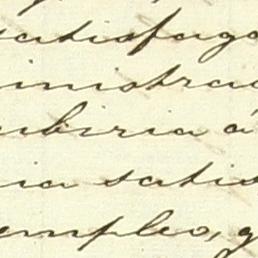 satisfago
inistrac
ubiria á
ia satis
empleo, q